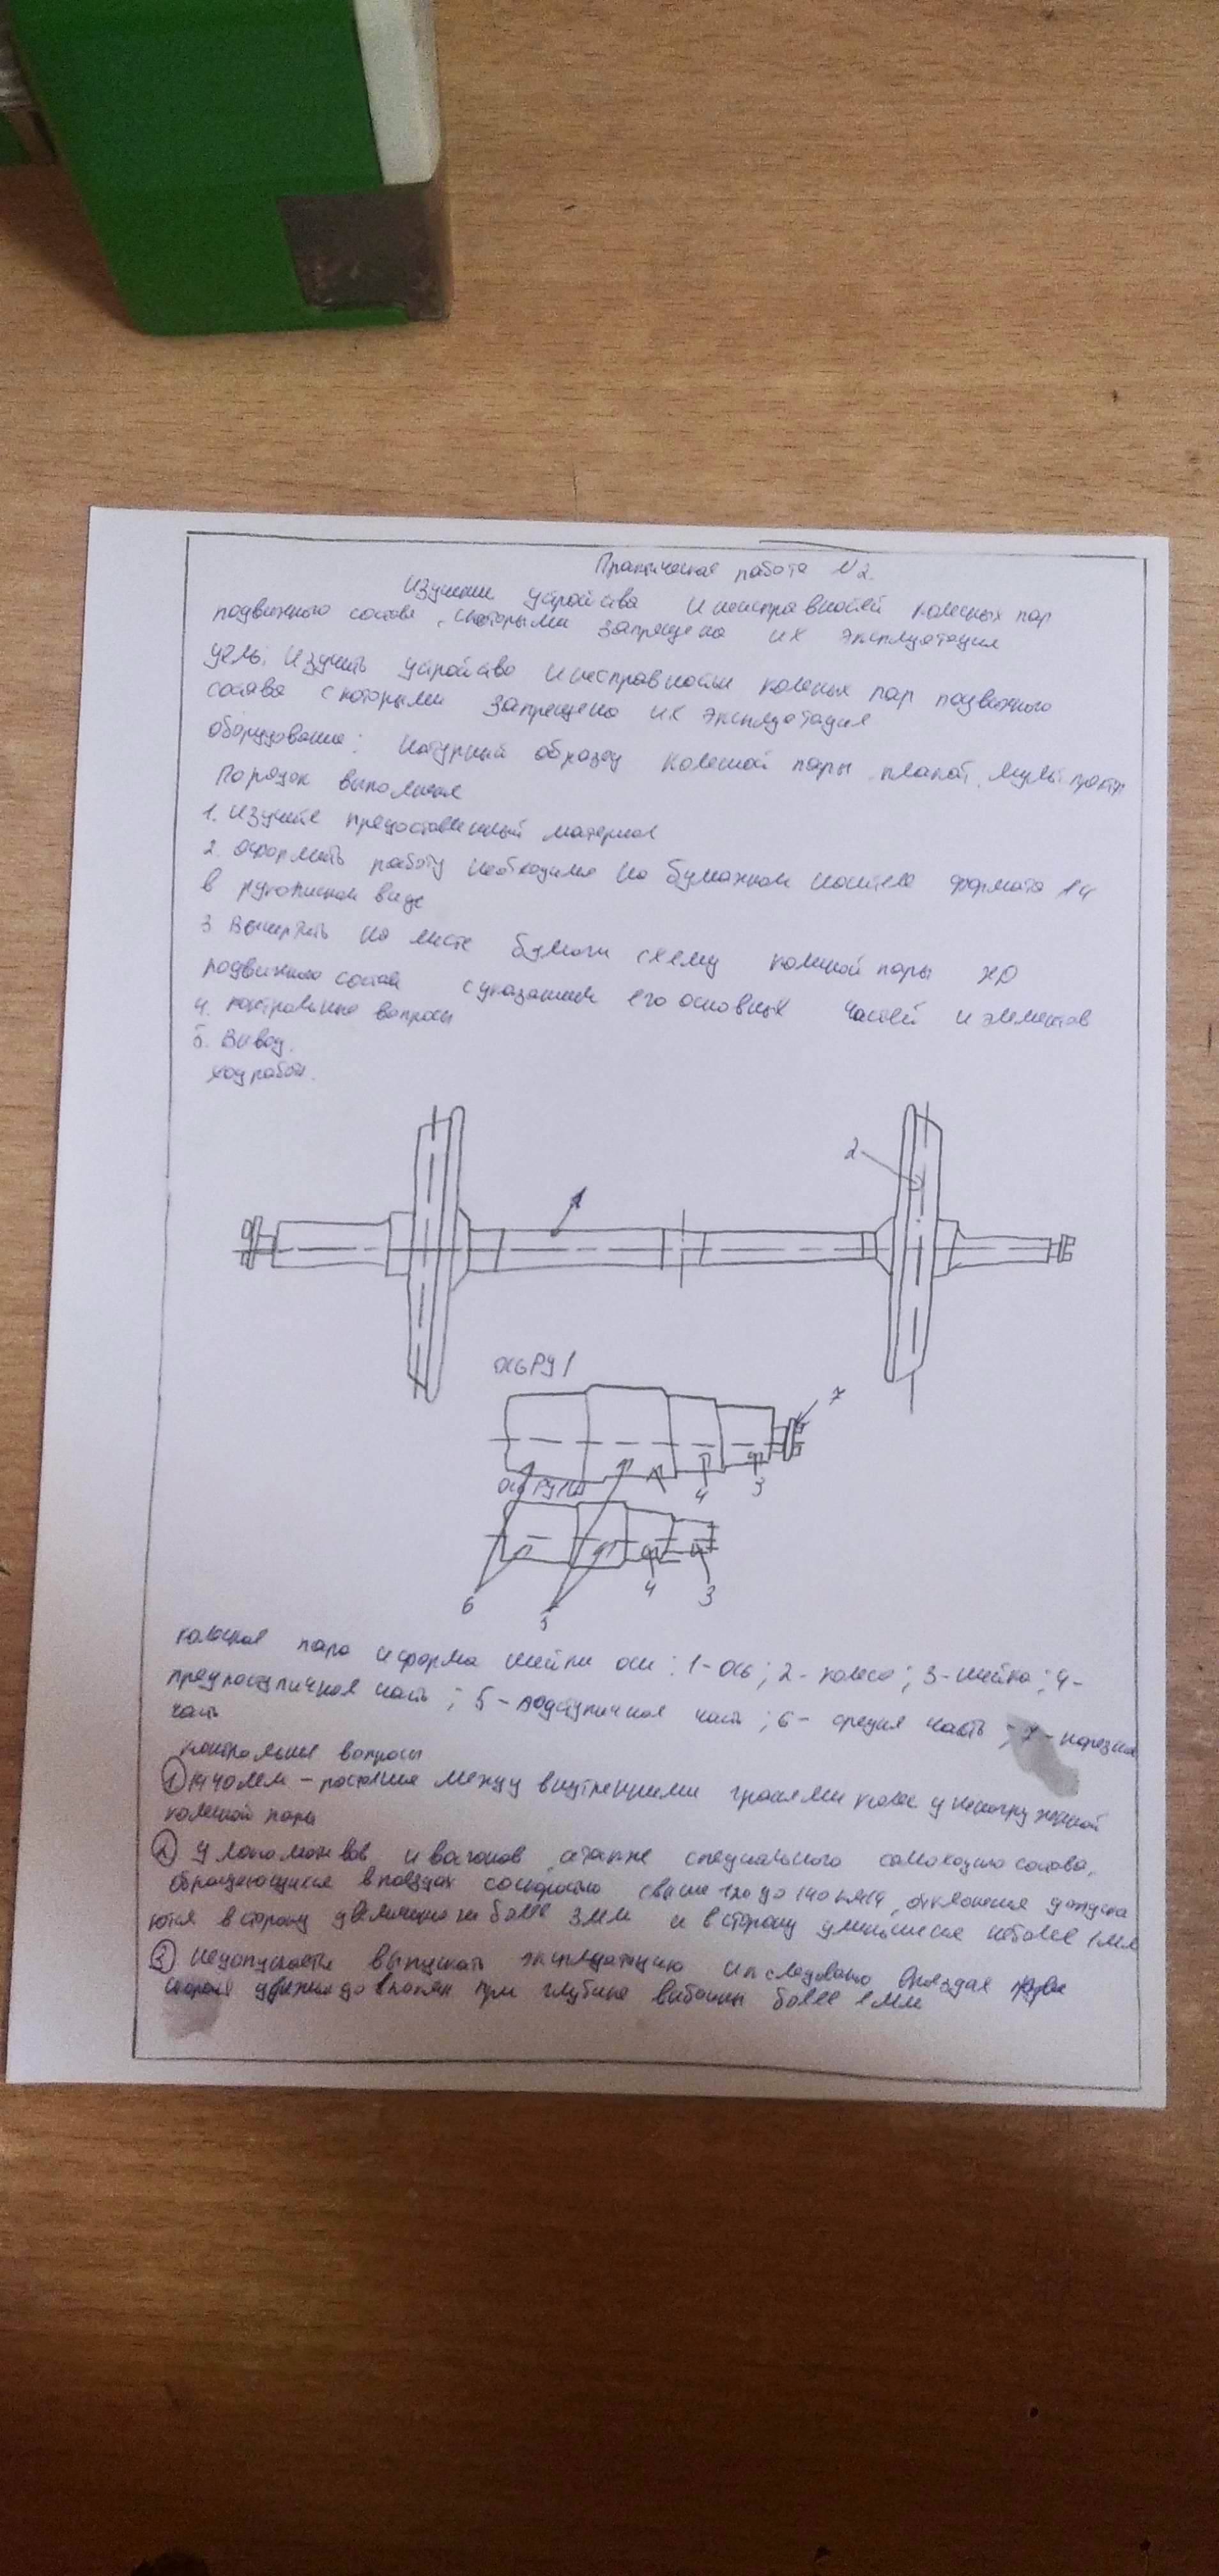 Практическая работа №2.
Изучение устройства и неисправностей колесных пар
подвижного состава, с которыми запрещено их эксплуатация
Цель: Изучить устройство и неисправностьи колесных пар подвижного
состава с которыми запрещено их эксплуатация
оборудование: натурный образец колесной пары, плакат, мультипроектр
Порядок выполнения
1. Изучите предоставленный материал
2. Оформить работу необходимо на бумажном носителе формата А4
в рукописном виде
3 Вычертить на листе бумаги схему колесной пары
подвижного состава с указанием его основных частей и элементов
4. контрольные вопросы
5. Вывод.
ход работы.
2
1
ось РУ1
7
4
3
ось РУ1Ш
4
3
6
5
колесная пара и форма шейки оси: 1-ось; 2-колесо; 3-шейка; 4-
предподступичная часть; 5-подступичная часть; 6- средняя часть; 7-нарезная
часть
контрольные вопросы
① 1440мм - растояние между внутренними гранями колес у ненагруженной
колесной пары
② У локомотивов и вагонов, а также специального самоходного состава,
обращающихся в поездах со скоростью свыше 120 до 140 км/ч, отклонения допуска
ются в сторону увеличения не более 3мм и в сторону уменьшения не более 1мм
③ Недопускается выпускать эксплуатацию и к следованию в поездах
при глубине выбоины более 1мм